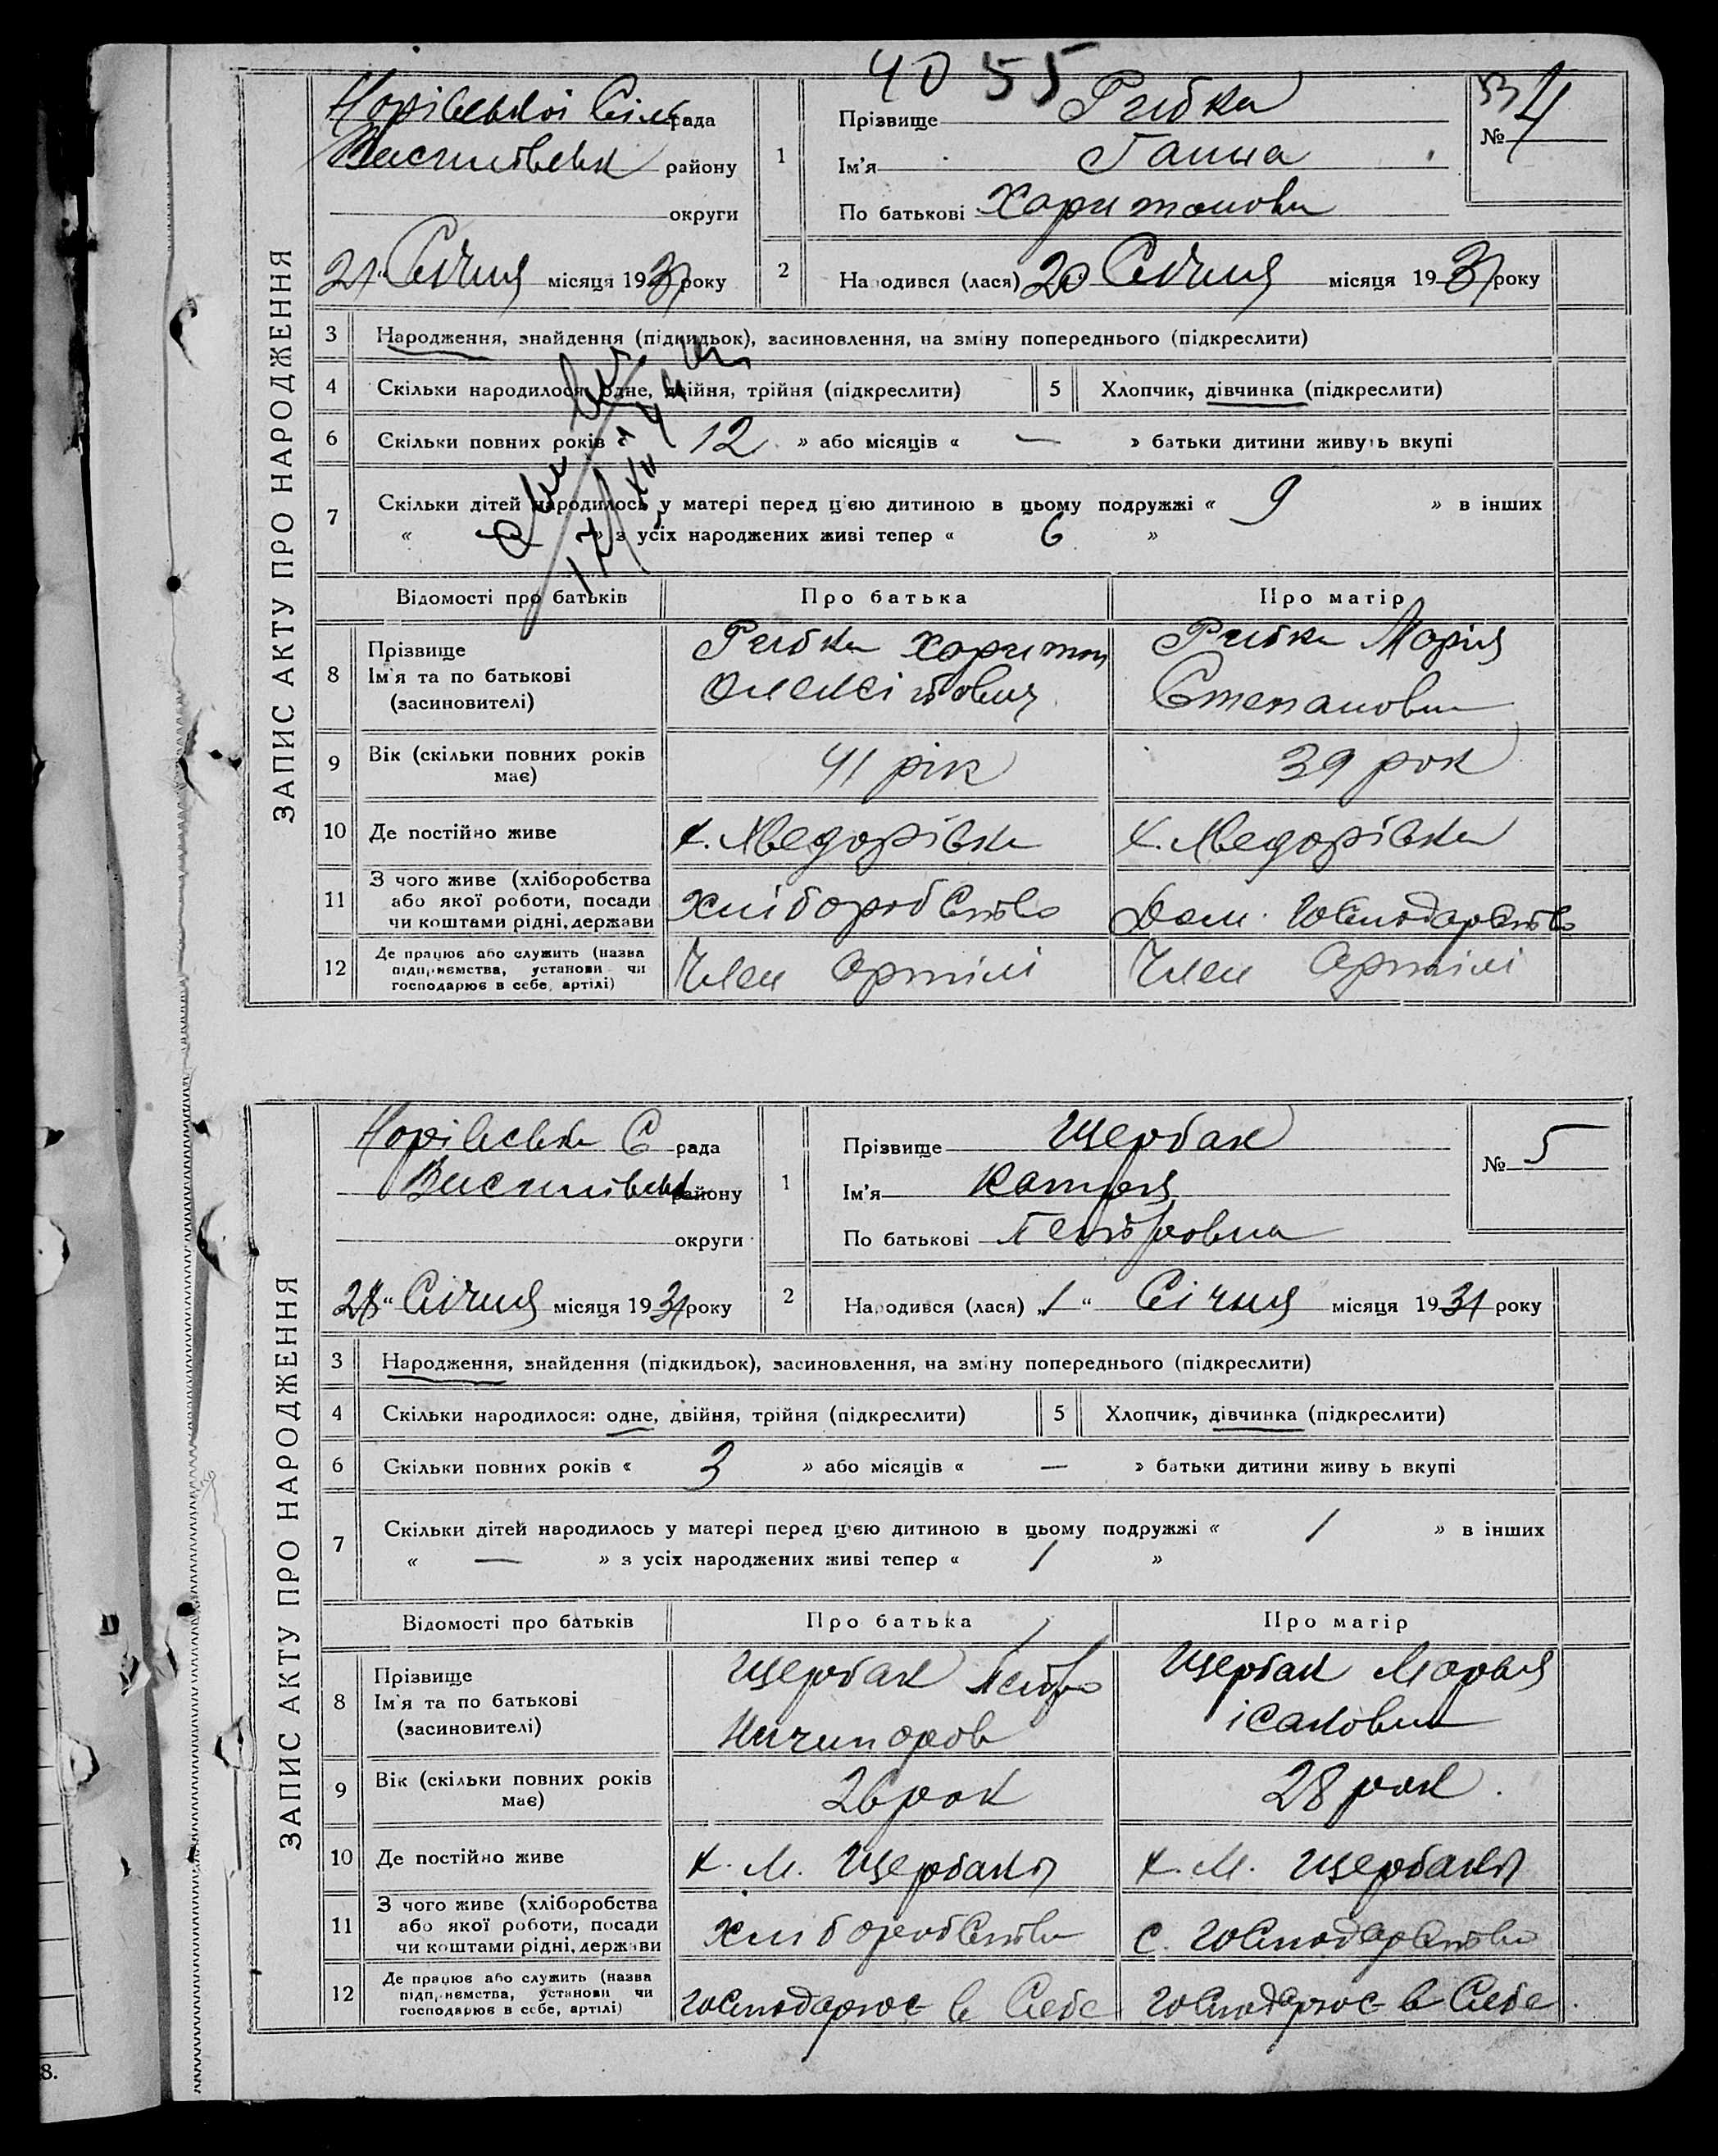 4055
Норівської Сільрада
району
округи
21 " Січня місяця 1931 року
1
Прізвище Рибка
Ім'я Ганна
По батькові Харитоновн
№ 4
2
Народився (лася) 20 Січня місяця 1931 року
ЗАПИС АКТУ ПРО НАРОДЖЕННЯ
3 Народження, знайдення (підкидьок), засиновлення, на зміну попереднього (підкреслити)
4 Скільки народилося: одне, двійня, трійня (підкреслити) 5 Хлопчик, дівчинка (підкреслити)
6 Скільки повних років « 12 » або місяців « — » батьки дитини живуть вкупі
7 Скільки дітей народилось у матері перед цією дитиною в цьому подружжі « 9 » в інших
« » з усіх народжених живі тепер « 6 »
Відомості про батьків Про батька Про матір
8 Прізвище Ім'я та по батькові (засновителі)
Рибка Харитон
Олексійович
Рибка Марія
Степановн
9 Вік (скільки повних років має) 41 рік 39 рок
10 Де постійно живе х. Лведорівка х. Лведорівка
11 З чого живе (хліборобства
або якої роботи, посади
чи коштами рідні, держави
Хліборобство Дом. Господарство
12 Де працює або служить (назва
підприємства, установи чи
господарює в себе, артілі)
Член Артілі Член Артілі
Норівська С рада
району
округи
28 " Січня місяця 1931 року
1
Прізвище Щербак
Ім'я Катря
По батькові Петровна
№ 5
2
Народився (лася) „1 " Січня місяця 1931 року
ЗАПИС АКТУ ПРО НАРОДЖЕННЯ
3 Народження, знайдення (підкидьок), засиновлення, на зміну попереднього (підкреслити)
4 Скільки народилося: одне, двійня, трійня (підкреслити) 5 Хлопчик, дівчинка (підкреслити)
6 Скільки повних років « 3 » або місяців « — » батьки дитини живу ь вкупі
7 Скільки дітей народилось у матері перед цією дитиною в цьому подружжі « 1 » в інших
« — » з усіх народжених живі тепер « 1 »
Відомості про батьків Про батька Про матір
8 Прізвище
Ім'я та по батькові
(засиновителі)
Щербак Петро
Ничипоров
Щербак Марья
ісаковн
9 Вік (скільки повних років має) 26 рок 28 рок.
10 Де постійно живе х. М. Щербаки х. М. Щербаки
11 З чого живе (хліборобства
або якої роботи, посади
чи коштами рідні, держави
Хліборобство С. Господарство
12 Де працює або служить (назва
підприємства, установи чи
господарює в себе, артілі)
господарює в Себе господарює в Себе.
8.